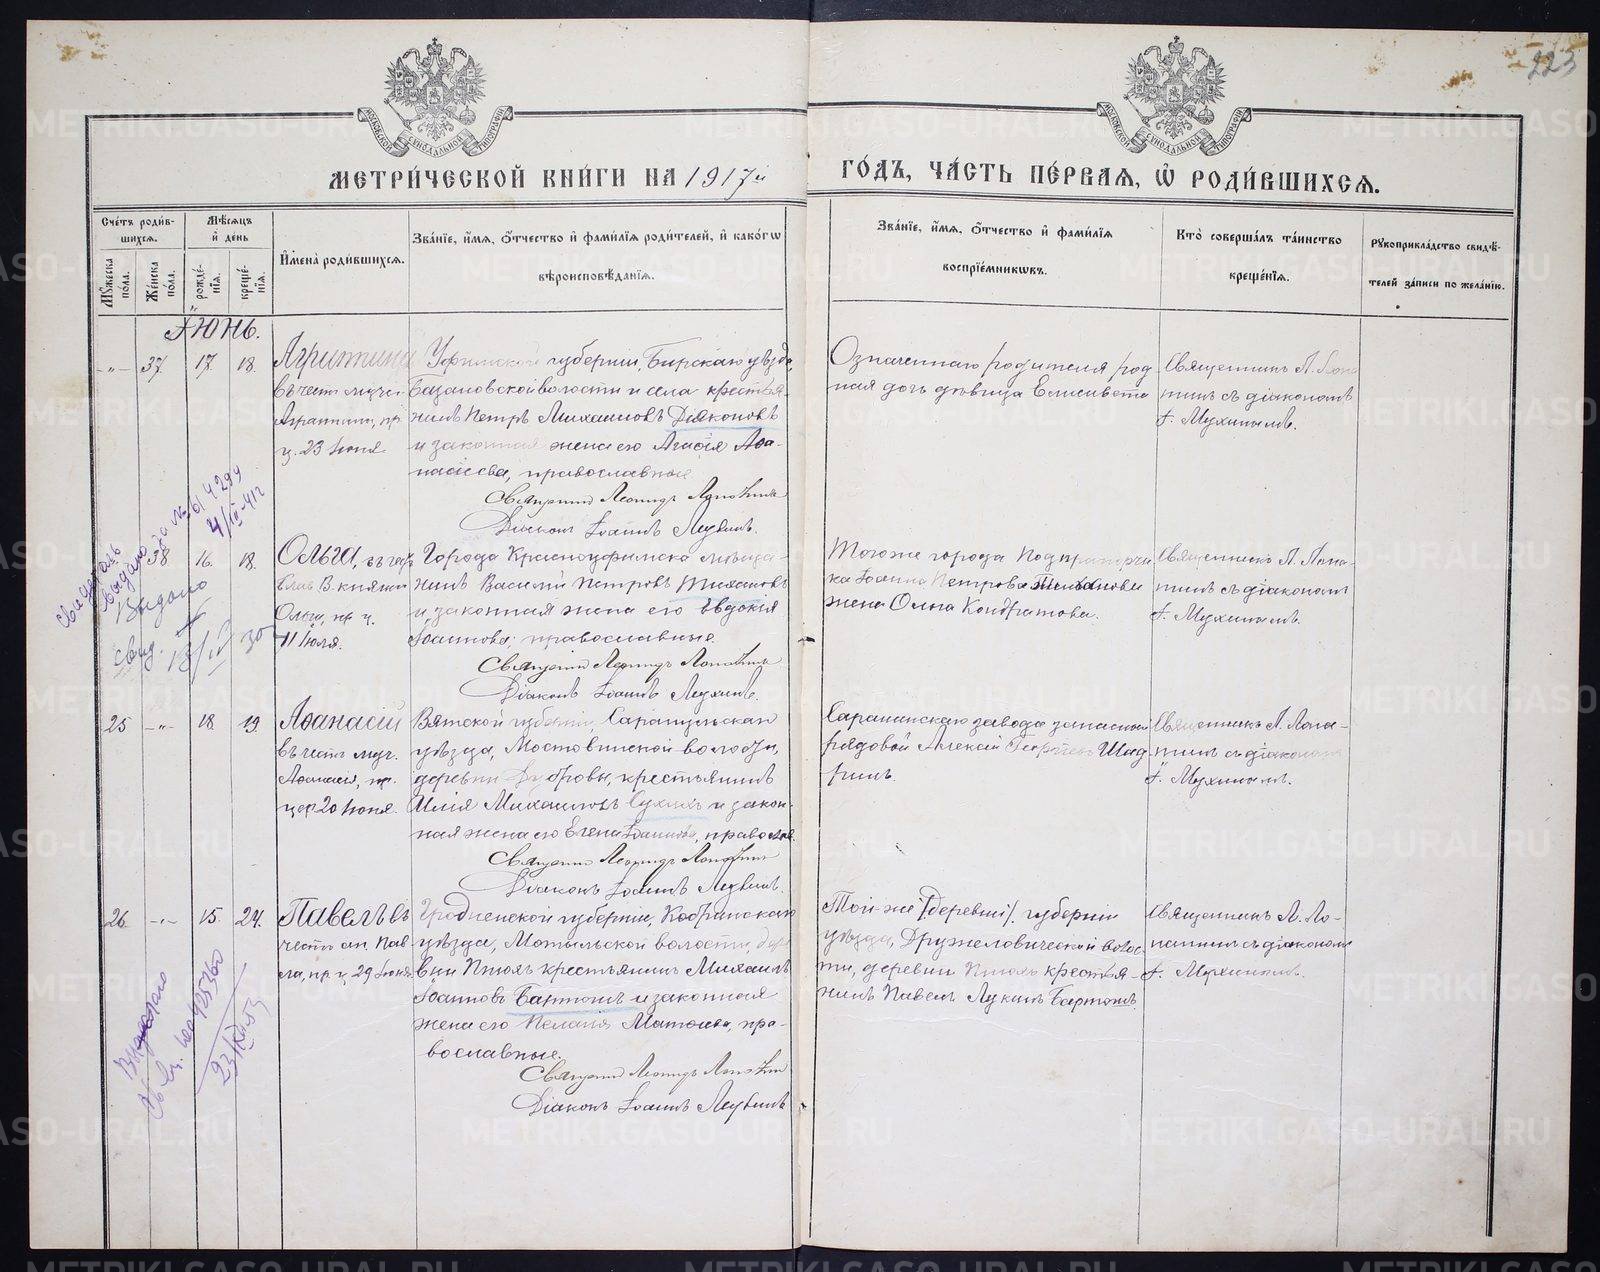 223
МОСКОВСКОЙ СѴНОДАЛЬНОЙ ТИПОГРАФІИ
МОСКОВСКОЙ СѴНОДАЛЬНОЙ ТИПОГРАФІИ
МЕТРИ́ЧЕСКОЙ КНИ́ГИ НА 1917й
ГО́ДЪ, ЧА́СТЬ ПЕ́РВАЯ, Ѽ РОДИ́ВШИХСЯ.
Сче́тъ роди́в-
шихся.
Мꙋ́жеска по́ла.
Же́нска по́ла.
Мѣ́сяцъ
и҆ де́нь
рожде́нїѧ.
креще́нїѧ.
И҆мена̀ роди́вшихсѧ.
Зва́нїе, и҆́мѧ, ѻ҆́тчество и҆ фами́лїѧ роди́телей, и҆ како́гѡ
вѣроисповѣ́данїѧ.
Зва́нїе, и҆́мѧ, ѻ҆́тчество и҆ фами́лїѧ
воспрїе́мникѡвъ.
Кто̀ соверша́лъ та́инство
креще́нїѧ.
Рꙋкоприкла́дство свидѣ́-
телей за́писи по жела́нїю.
Іюнь.
-"- 37. 17. 18.
Агриппина
въ честь мучен.
Агриппины, пр.
ц. 23 Іюня.
Уфимской губерніи, Бирскаго уѣзда,
Базановской волости и села крестья-
нинъ Петръ Михаиловъ Дьяконовъ
и законная жена его Агаѳія Аѳа-
насіева, православные
Священникъ Леонидъ Лопатинъ
Діаконъ Іоаннъ Мухинъ.
Означеннаго родителя род
ная дочь дѣвица Елисавета
Священникъ Л. Лопа
тинъ съ діакономъ
І. Мухинымъ.
Свидѣтель
выдано за №
4299
4/III-41г
38 16. 18.
Ольга, въ чес
Слав. В. княгини
Ольги, пр. ц.
11 Іюля.
Города Красноуфимска мѣща-
нинъ Василій Петровъ Тихановъ
и законная жена его Евдокія
Іоаннова, православные.
Священникъ Леонидъ Лопатинъ
Діаконъ Іоаннъ Мухинъ.
Того же города Подпрапорщи
ка Іоанна Петрова Тиханова
жена Ольга Кондратова.
Священникъ Л. Лопа-
тинъ съ діакономъ
І. Мухинымъ.
Выдано
свид.
25 -"- 18. 19.
Аѳанасій
въ честь муч.
Аѳанасія, пр.
цер. 20 Іюня.
Вятской губерніи Сарапульскаго
уѣзда, Мостовинской волости,
деревни Дубровы, крестьянинъ
Илія Михаиловъ Сухихъ и закон-
ная жена его Елена Іоаннова, православ.
Священникъ Леонидъ Лопатинъ
Діаконъ Іоаннъ Мухинъ.
Саранинскаго завода запасный
рядовой Алексій Георгіевъ Шад
ринъ.
Священникъ Л. Лопа-
тинъ съ діакономъ
І. Мухинымъ.
26. -"- 15. 24.
Павелъ въ
честь ап. Пав
ла, пр. ц. 29 Іюня
Гродненской губерніи, Кобринскаго
уѣзда, Мотыльской волости, дере
вни Пнюхъ крестьянинъ Михаилъ
Іоанновъ Бартошъ и законная
жена его Пелагія Матѳеева, пра-
вославные.
Священникъ Леонидъ Лопатинъ
Діаконъ Іоаннъ Мухинъ
Той-же (деревни). губерніи
уѣзда, Дружеловической волос-
ти, деревни Пнюхъ крестья-
нинъ Павелъ Лукинъ Бартошъ.
Священникъ Л. Ло-
патинъ съ діакономъ
І. Мухинымъ.
METRIKI.GASO-URAL.RU